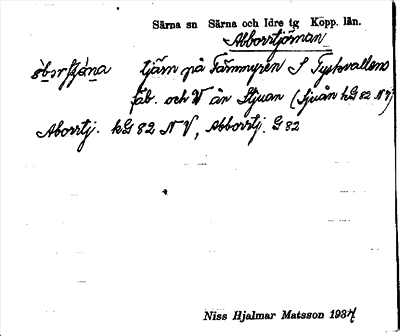 Särna sn Särna och Idre tg Kopp. län.
Abborrtjörnan
tjärn på Fämmyren S Tyskvallens
fäb. och V ån Stjuan (Sjuån kG 82 NV)
Aborrtj. kG 82 NV, Abborrtj. G 82
Niss Hjalmar Matsson 1937